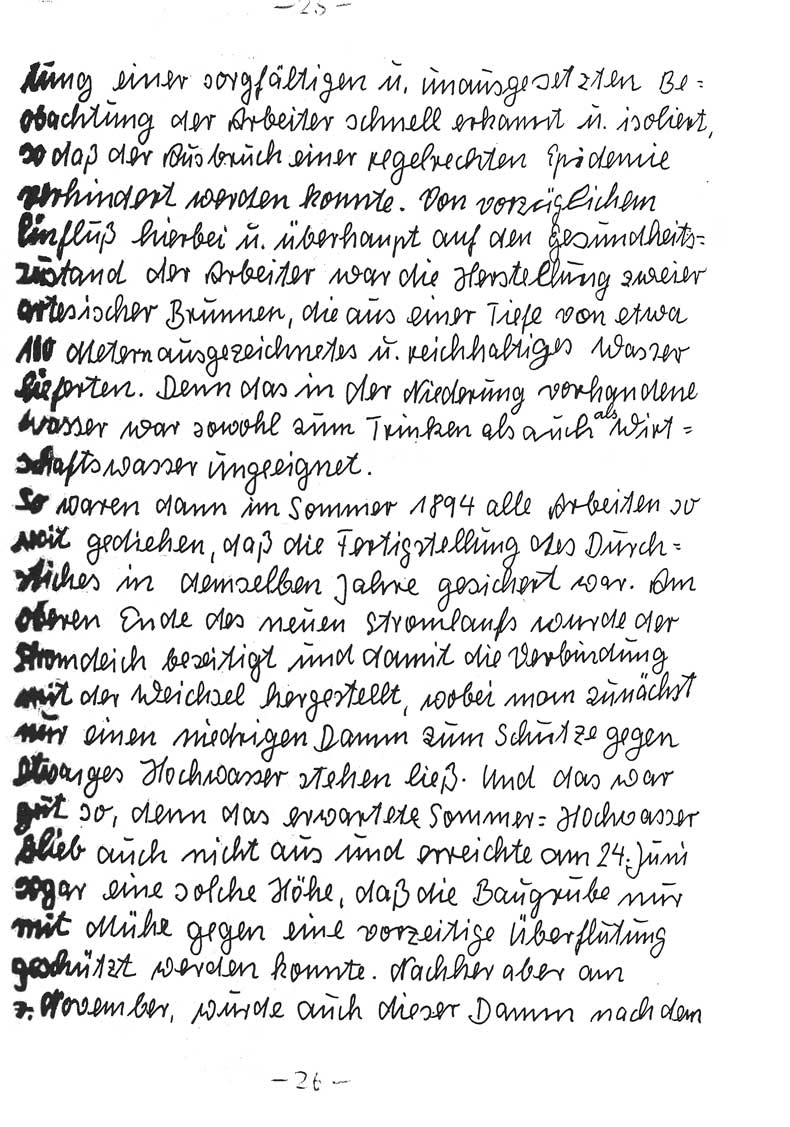 -25-
tung einer sorgfältigen u. unausgesetzten Be=
obachtung der Arbeiter schnell erkannt u. isoliert,
so daß der Ausbruch einer regelrechten Epidemie
verhindert werden konnte. Von vorzüglichem
Einfluß hierbei u. überhaupt auf den gesundheits=
zustand der Arbeiter war die Herstellung zweier
artesischer Brunnen, die aus einer Tiefe von etwa
110 Metern ausgezeichnetes u. reichhaltiges Wasser
lieferten. Denn das in der Niederung vorhandene
Wasser war sowohl zum Trinken als auch als Wirt=
schaftswasser ungeeignet.
So waren dann im Sommer 1894 alle Arbeiten so
weit gediehen, daß die Fertigstellung des Durch=
stiches in demselben Jahre gesichert war. Am
oberen Ende des neuen Stromlaufs wurde der
Stromdeich beseitigt und damit die Verbindung
mit der Weichsel hergestellt, wobei man zunächst
nur einen niedrigen Damm zum Schutze gegen
etwaiges Hochwasser stehen ließ. Und das war
gut so, denn das erwartete Sommer=Hochwasser
blieb auch nicht aus und erreichte am 24. Juni
sogar eine solche Höhe, daß die Baugrube nur
mit Mühe gegen eine vorzeitige Überflutung
geschützt werden konnte. Nachher aber am
7. November, wurde auch dieser Damm nach dem
-26-